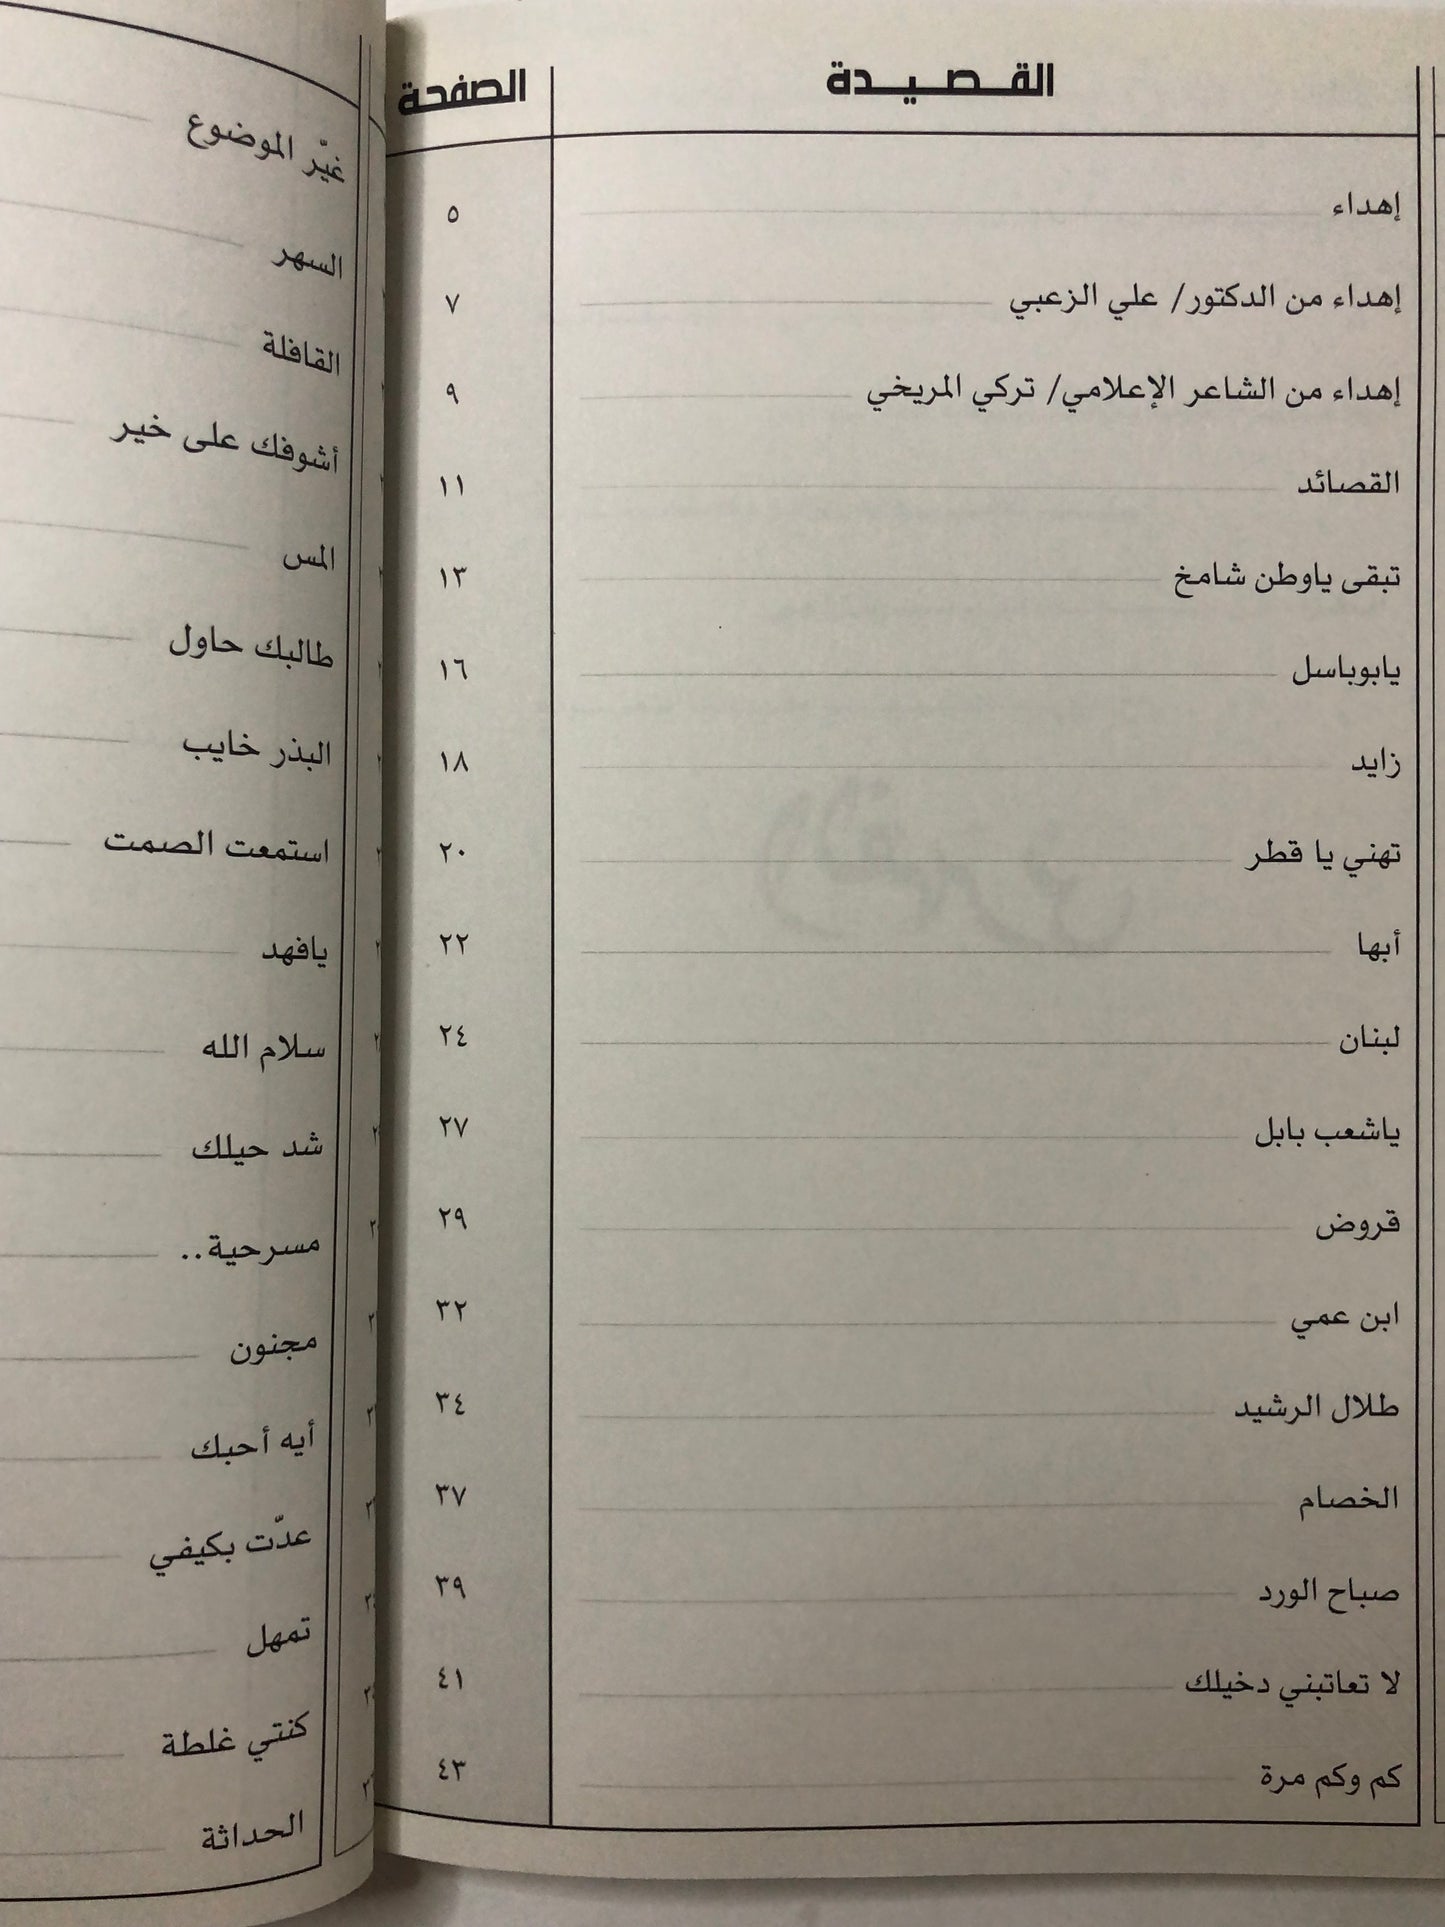 القصيدة الصفحة
إهداء ٥
إهداء من الدكتور/ علي الزعبي ٧
إهداء من الشاعر الإعلامي/ تركي المريخي ٩
القصائد ١١
تبقى ياوطن شامخ ١٣
يابوباسل ١٦
زايد ١٨
تهني يا قطر ٢٠
أبها ٢٢
لبنان ٢٤
ياشعب بابل ٢٧
قروض ٢٩
ابن عمي ٣٢
طلال الرشيد ٣٤
الخصام ٣٧
صباح الورد ٣٩
لا تعاتبني دخيلك ٤١
كم وكم مرة ٤٣
غيّر الموضوع
السهر
القافلة
أشوفك على خير
المس
طالبك حاول
البذر خايب
استمعت الصمت
يافهد
سلام الله
شد حيلك
مسرحية..
مجنون
أيه أحبك
عدّت بكيفي
تمهل
كنتي غلطة
الحداثة